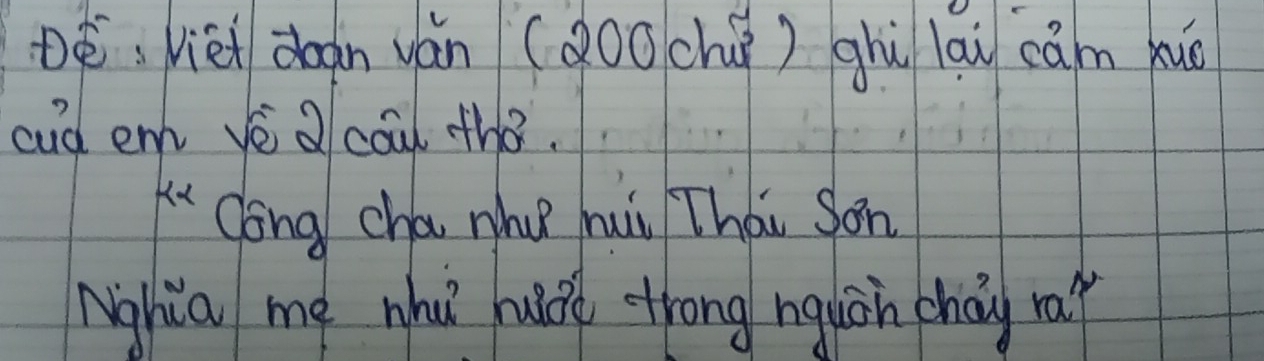 Đề: Viết đoạn văn (200 chữ) ghi lại cảm xúc
của em về 2 câu thơ.
"Công cha như núi Thái Sơn
Nghĩa mẹ như nước trong nguồn chảy ra"